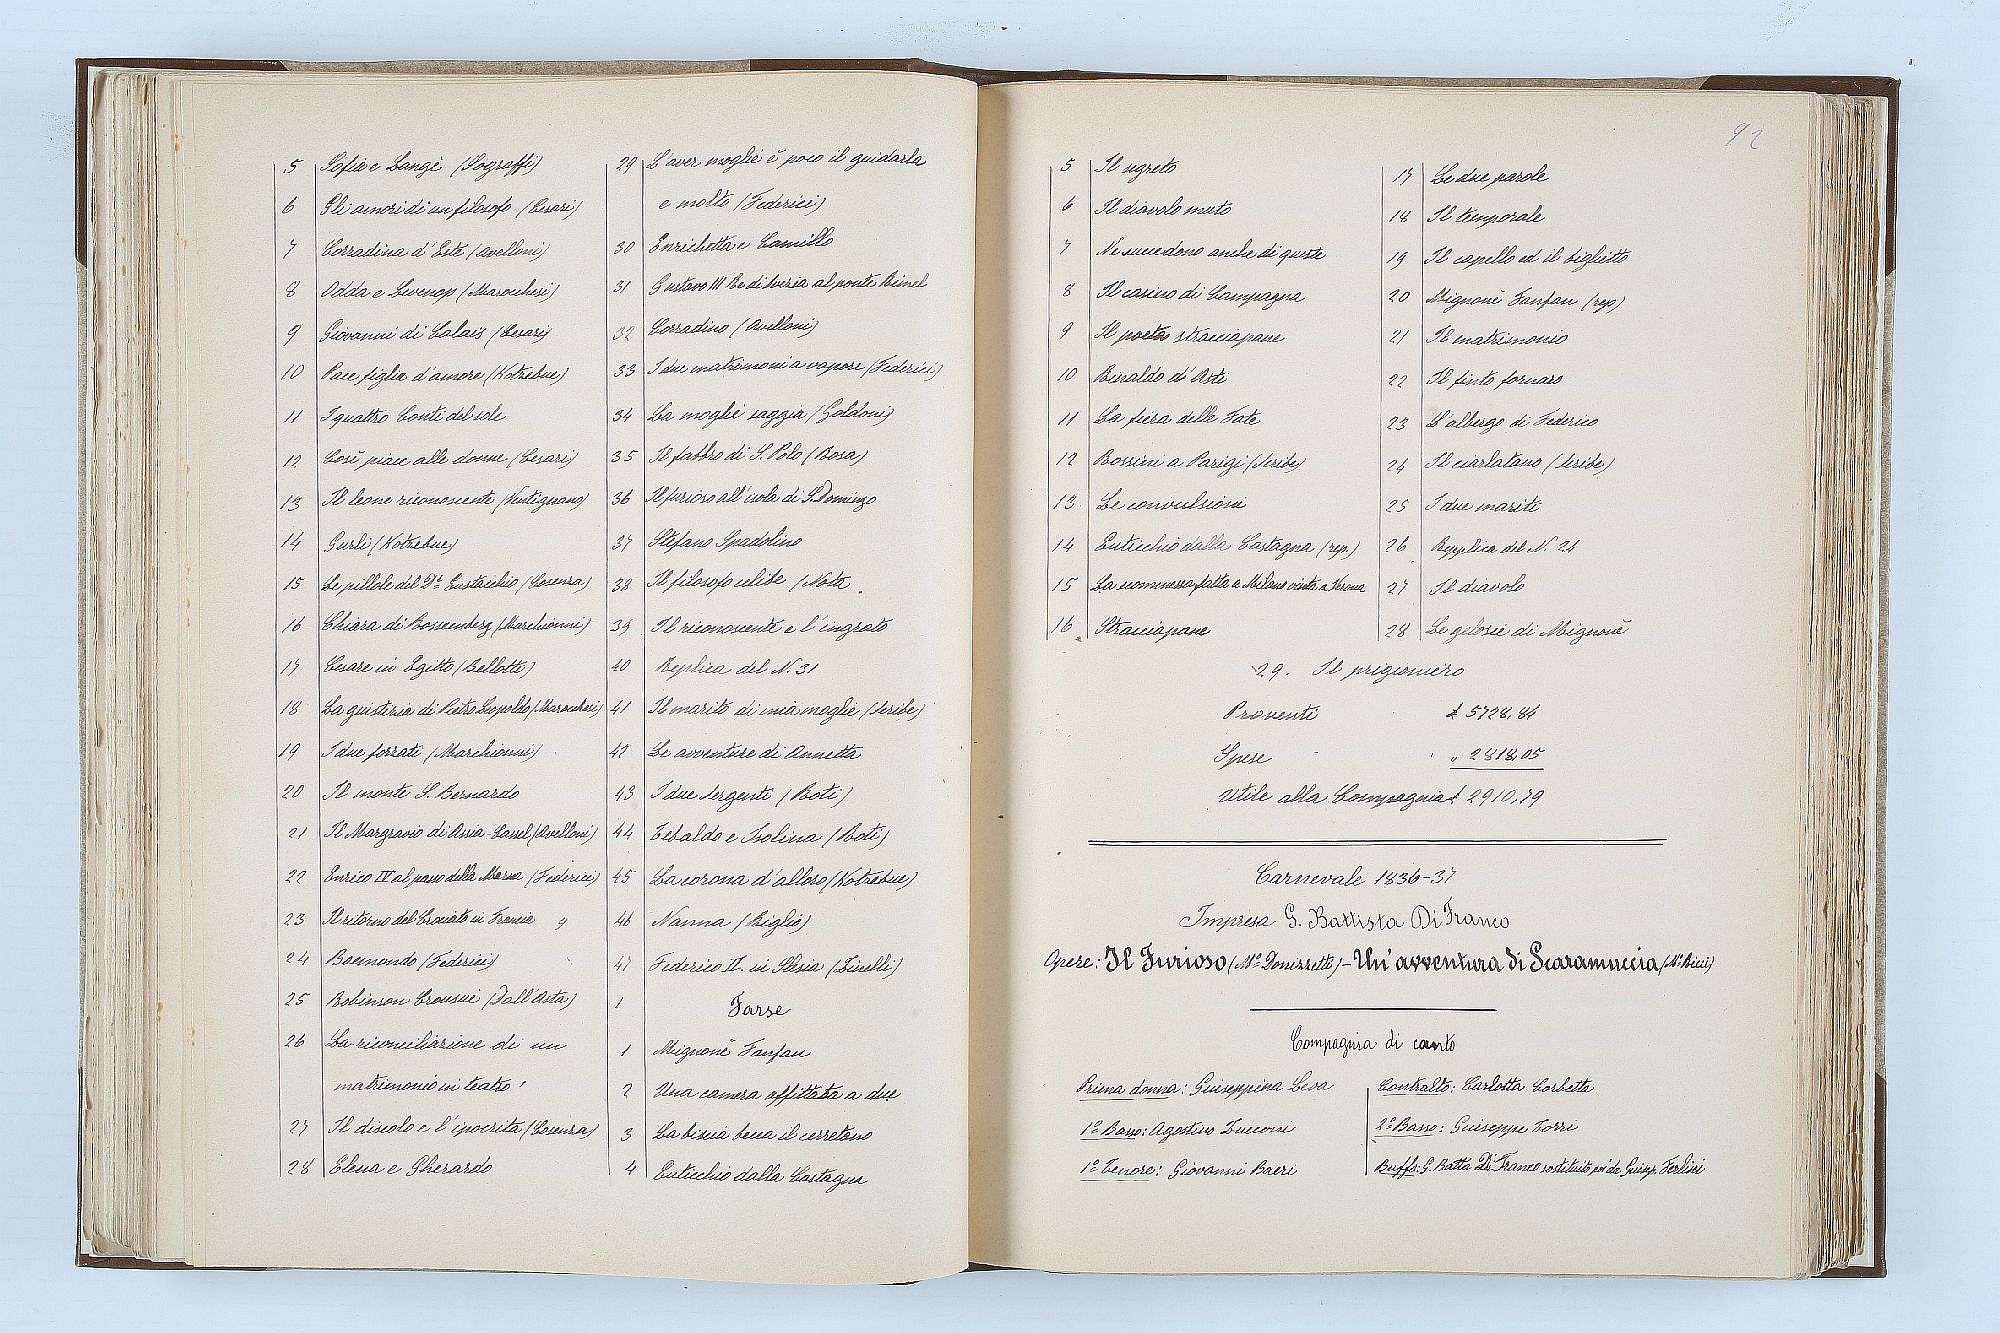 5 Sofia e Langè (Sograffi)
6 Gli amori di un filosofo (Cesari)
7 Corradina d'Este (Avelloni)
8 Odda e (Marocchesi)
9 Giovanni di Calais (Cesari)
10 Pace figlia d'amore (Kotzebue)
11 I quattro Conti del sole
12 Così piace alle donne (Cesari)
13 Il leone riconoscente (Ventignano)
14 Gurli (Kotzebue)
15 Le pillole del Dr. Eustacchio (Cosenza)
16 Chiara di Rossemberg (Marchionni)
17 Cesare in Egitto (Bellotti)
18 La giustizia di Pietro Leopoldo (Marocchesi)
19 I due forzati (Marchionni)
20 Il monte S. Bernardo
21 Il Margravio di Assia-Cassel (Avelloni)
22 Enrico IV al passo della Marna (Federici)
23 Il ritorno del Crociato in Francia "
24 Boemondo (Federici)
25 Robinson Crousuè (Dall'Asta)
26 La riconciliazione di un
matrimonio in teatro!
27 Il discolo e l'ipocrita (Cosenza)
28 Elena e Gherardo
29 L'aver moglie è poco il guidarla
e molto (Federici)
30 Enrichetta e Camillo
31 Gustavo III Re di Svezia al ponte
32 Corradino (Avelloni)
33 I due matrimoni a vapore (Federici)
34 La moglie saggia (Goldoni)
35 Il fabbro di S. Polo (Rosa)
36 Il furioso all'isola di S. Domingo
37 Stefano Spadolino
38 Il filosofo celibe (Nota
39 Il riconoscente e l'ingrato
40 Replica del N. 31
41 Il marito di mia moglie (Scribe)
42 Le avventure di Annetta
43 I due sergenti (Roti)
44 Tebaldo e Isolina (Roti)
45 La corona d'alloro (Kotzebue)
46 Nanna (Riglio)
47 Federico II. in Slesia (Zinelli)
1 Farse
1 Mignonè Fanfan
2 Una camera affittata a due
3 La biscia becca il cerretano
4 Euticchio dalla Castagna
92
5 Il segreto
6 Il diavolo muto
7 Ne succedono anche di queste
8 Il casino di Campagna
9 Il poeta stracciapane
10 Rinaldo d'Asti
11 La fiera delle Fate
12 Rossini a Parigi (Scribe)
13 Le convulsioni
14 Euticchio dalla Castagna (rep.)
15 La scommessa fatta a Milano vinta a Verona
16 Stracciapane
17 Le due parole
18 Il temporale
19 Il capello ed il biglietto
20 Mignonè Fanfan (rep)
21 Il matrimonio
22 Il finto fornaro
23 L'albergo di Federico
24 Il ciarlatano (Scribe)
25 I due mariti
26 Repplica del N. 21
27 Il diavolo
28 Le gelosie di Mignonè
29. Il prigioniero
Proventi £ 5728,84
Spese " 2818,05
Utile alla Compagnia £ 2910,79
Carnevale 1836-37
Impresa G. Battista Di Franco
Opere: Il Furioso (Mo. Donizzetti) - Un'avventura di Scaramuccia (Mo. Ricci)
Compagnia di canto
Prima donna: Giuseppina Leva
1o Basso: Agostino Zucconi
1o Tenore: Giovanni Baeri
Contralto: Carlotta Corbetta
2o Basso: Giuseppe Torri
Buffo: G. Batta Di Franco sostituito poi da Giusep. Ferlini